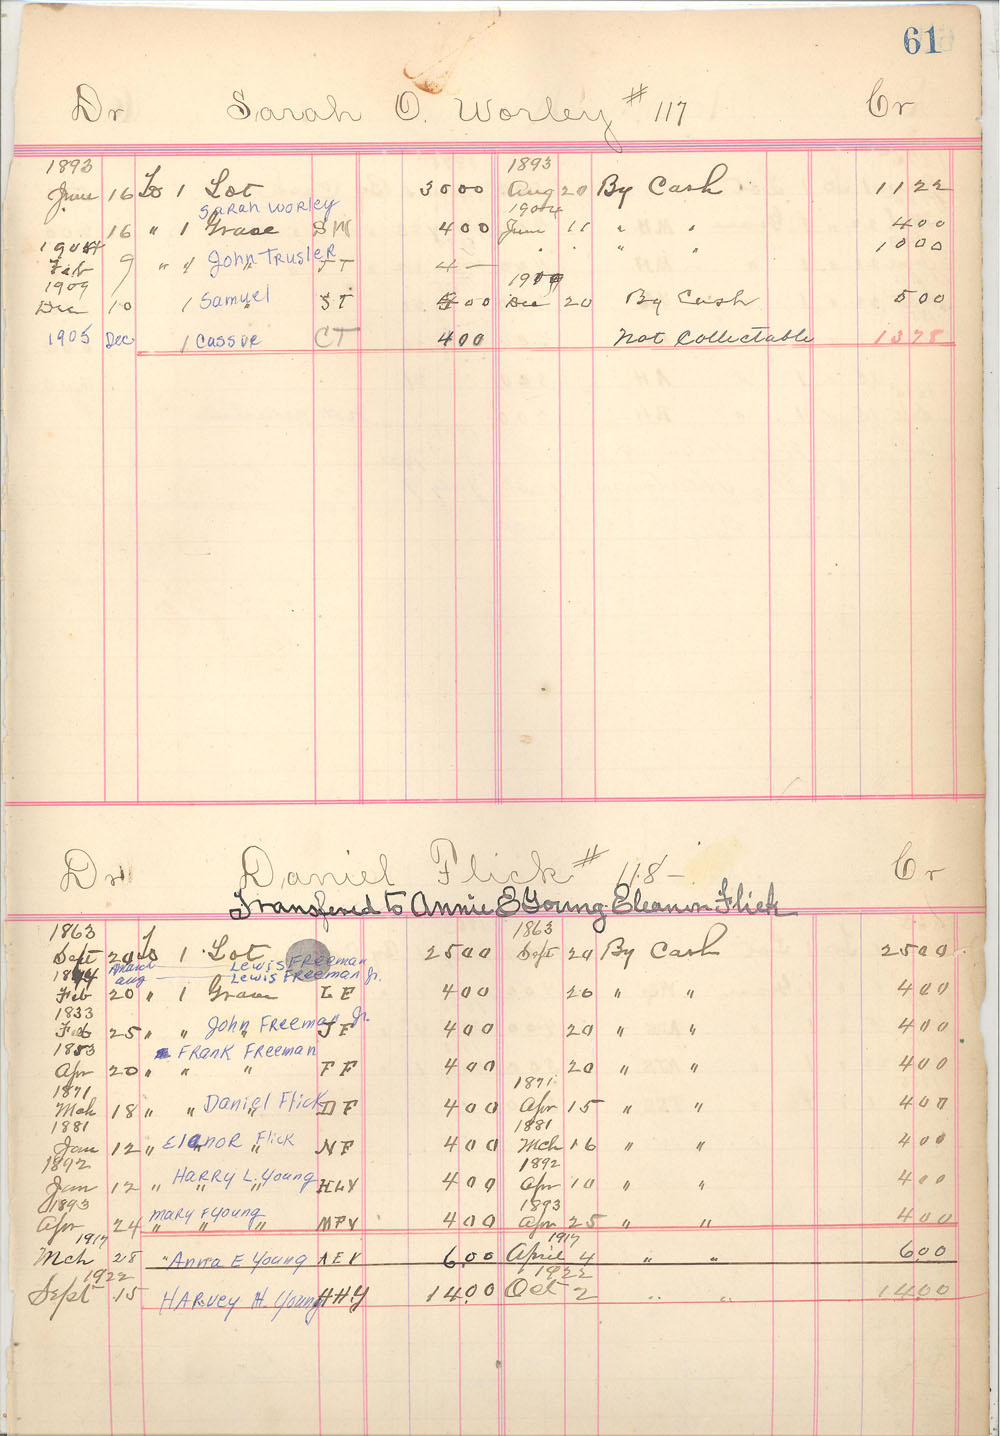 61
Dr Sarah O. Worley # 117 Cr
1893 1893
June 16 To 1 Lot 30 00 Aug 20 By Cash 11 22
Sarah Worley 1904
16 " 1 Grave S W 4 00 June 11 " " 4 00
" " 10 00
Feb 9 " 1 John Trusler J T 4 —
1909 1909
Dec 10 1 Samuel " S T 5 00 Dec 20 By Cash 5 00
1905 Dec 1 Cassie C T 4 00 Not Collectable 13 78
Dr Daniel Flick # 118 — Cr
Transfered to Annie E Young Eleanor Flick
1863 1863
Sept 20 To 1 Lot 25 00 Sept 20 By Cash 25 00
March Lewis Freeman
aug Lewis Freeman Jr.
Feb 20 " 1 Grave L F 4 00 20 " " 4 00
1833
Feb 25 " " John Freeman Jr. J F 4 00 20 " " 4 00
1853 Frank Freeman
Apr 20 " " " F F 4 00 20 " " 4 00
1871 1871
Mch 18 " " Daniel Flick D F 4 00 Apr 15 " " 4 00
1881 1881
Jan 12 " Eleanor Flick N F 4 00 Mch 16 " " 4 00
1892 1892
Jan 12 " Harry L. Young H L Y 4 00 Apr 10 " " 4 00
1893 1893
Apr 24 " Mary F Young M F Y 4 00 Apr 25 " " 4 00
1917 1917
Mch 28 " Anna E Young A E Y 6 00 April 4 " " 6 00
1922 1922
Sept 15 Harvey H. Young H H Y 14 00 Oct 2 " " 14 00